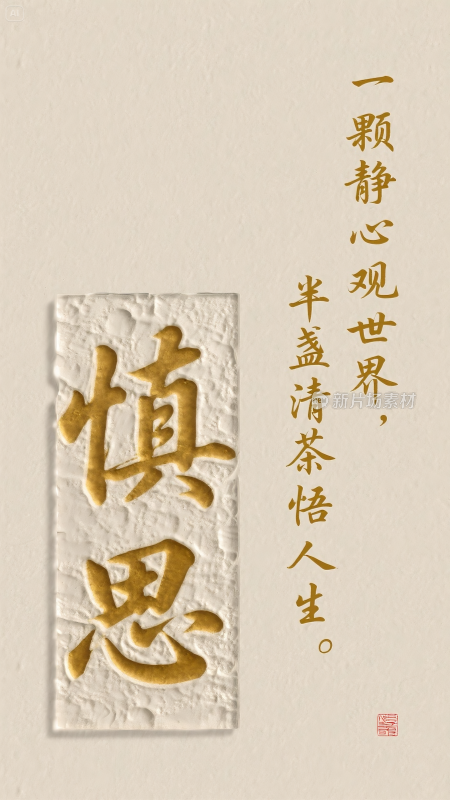 一颗静心观世界，
半盏清茶悟人生。
慎思
新片场素材